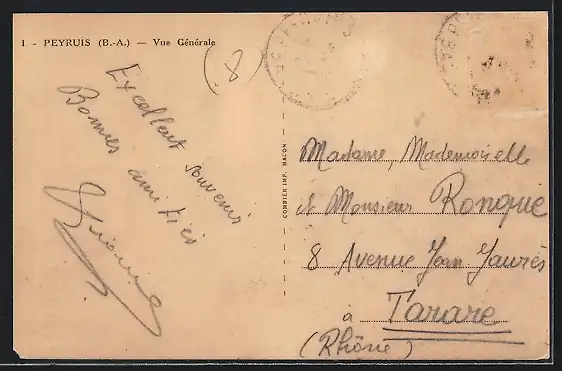 1 - PEYRUIS (B.-A.) — Vue Générale
(8)
Excellent souvenir
Bonnes amitiés
COMBIER IMP. MACON
Madame, Mademoiselle
et Monsieur Ronque
8 Avenue Jean Jaurès
à Tarare
(Rhône)